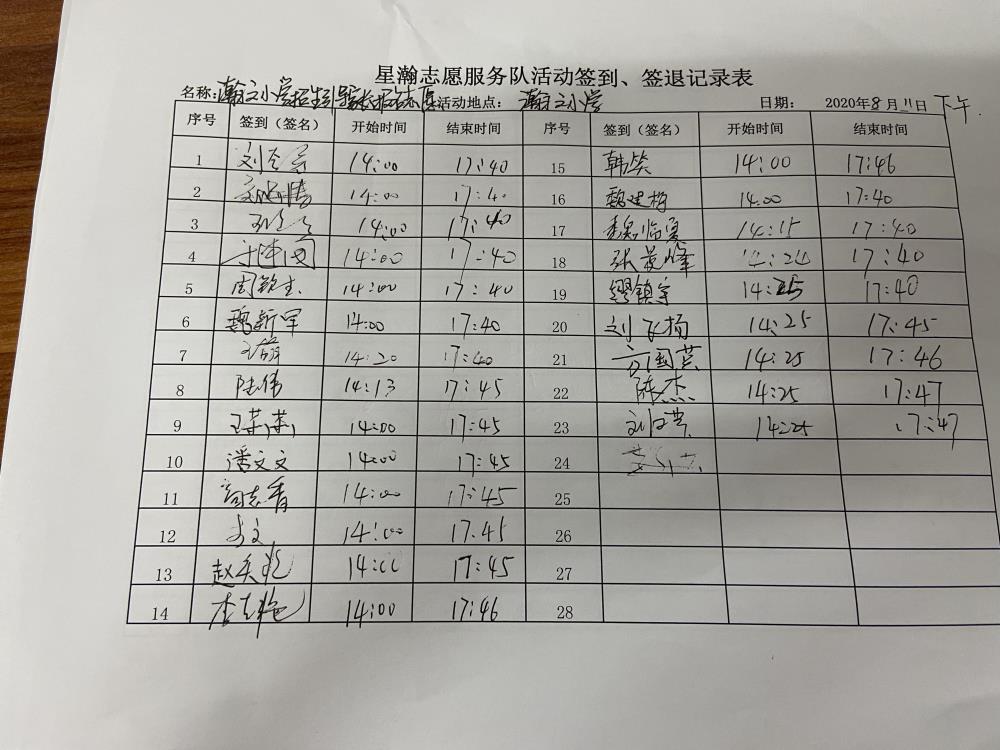 星瀚志愿服务队活动签到、签退记录表
名称：瀚文小学招生 活动地点：瀚文小学 日期： 2020年8月11日下午
序号 签到（签名） 开始时间 结束时间 序号 签到（签名） 开始时间 结束时间
1 14:00 17:40 15 韩笑 14:00 17:46
2 14:00 17:40 16 魏建梅 14:00 17:40
3 14:00 17:40 17 魏临夏 14:15 17:40
4 14:00 17:40 18 张 峰 14:24 17:40
5 周 14:00 17:40 19 缪镇宇 14:25 17:40
6 魏新军 14:00 17:40 20 刘飞扬 14:25 17:45
7 14:20 17:40 21 国英 14:25 17:46
8 陆伟 14:13 17:45 22 陈杰 14:25 17:47
9 王荣荣 14:00 17:45 23 刘 14:25 17:47
10 潘文文 14:00 17:45 24
11 高志香 14:00 17:45 25
12 李文 14:00 17.45 26
13 赵 14:00 17:45 27
14 李 艳 14:00 17:46 28